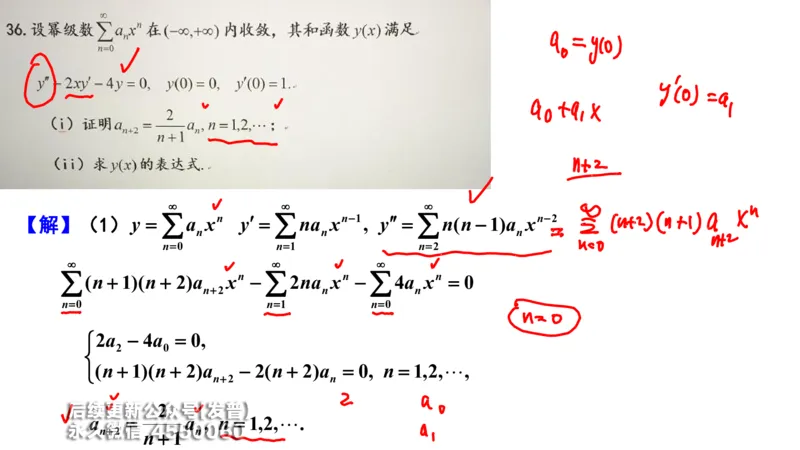 36. 设幂级数 $\sum_{n=0}^{\infty} a_n x^n$ 在 $(-\infty,+\infty)$ 内收敛，其和函数 $y(x)$ 满足
$y''-2xy'-4y=0,\quad y(0)=0,\quad y'(0)=1.$
（i）证明 $a_{n+2}=\frac{2}{n+1}a_n, n=1,2,\cdots$；
（ii）求 $y(x)$ 的表达式.
$a_0=y(0)$
$y'(0)=a_1$
$a_0+a_1x$
$n+2$
【解】（1）$y=\sum_{n=0}^{\infty} a_n x^n\quad y'=\sum_{n=1}^{\infty} na_n x^{n-1},\quad y''=\sum_{n=2}^{\infty} n(n-1)a_n x^{n-2}$ $=\sum_{n=0}^{\infty}(n+2)(n+1)a_{n+2}x^n$
$\sum_{n=0}^{\infty}(n+1)(n+2)a_{n+2}x^n-\sum_{n=1}^{\infty}2na_nx^n-\sum_{n=0}^{\infty}4a_nx^n=0$
$n=0$
$2a_2-4a_0=0,$
$(n+1)(n+2)a_{n+2}-2(n+2)a_n=0,\ n=1,2,\cdots,$
$a_{n+2}=\frac{2}{n+1}a_n,\ n=1,2,\cdots.$
2 $a_0$
$a_1$
后续更新公众号(发普)